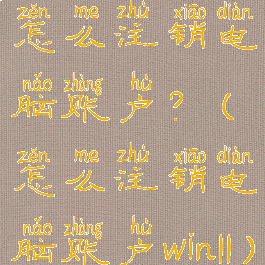 zěn me zhù xiāo diàn
怎么注销电
nǎo zhàng hù
脑账户？（
zěn me zhù xiāo diàn
怎么注销电
nǎo zhàng hù
脑账户win11）